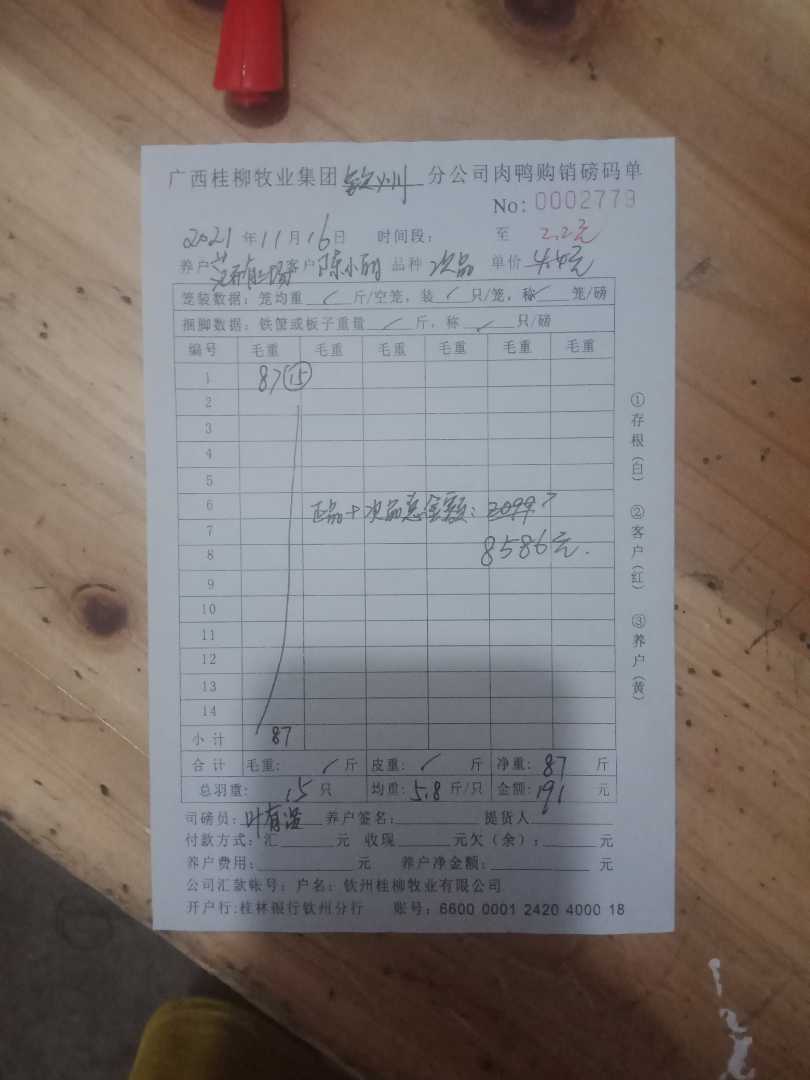 广西桂柳牧业集团钦州分公司肉鸭购销磅码单
No: 0002779
2021年11月16日 时间段: 至 2.2元
养户 客户 陈小丽 品种 次品 单价 4.4元
笼装数据: 笼均重 ✓ 斤/空笼, 装 ✓ 只/笼, 称 ✓ 笼/磅
捆脚数据: 铁筐或板子重量 ✓ 斤, 称 ✓ 只/磅
编号 毛重 毛重 毛重 毛重 毛重 毛重
1 87 15
2
3
4
5
6 正品+次品总金额: 20997
7
8 8586元.
9
10
11
12
13
14
小计 87
合计 毛重: ✓ 斤 皮重: ✓ 斤 净重: 87 斤
总羽重: 15 只 均重: 5.8 斤/只 金额: 191 元
司磅员: 叶有 养户签名: 提货人
付款方式: 汇 元 收现 元欠(余): 元
养户费用: 元 养户净金额: 元
公司汇款帐号: 户名: 钦州桂柳牧业有限公司
开户行:桂林银行钦州分行 账号: 6600 0001 2420 4000 18
①存根(白) ②客户(红) ③养户(黄)